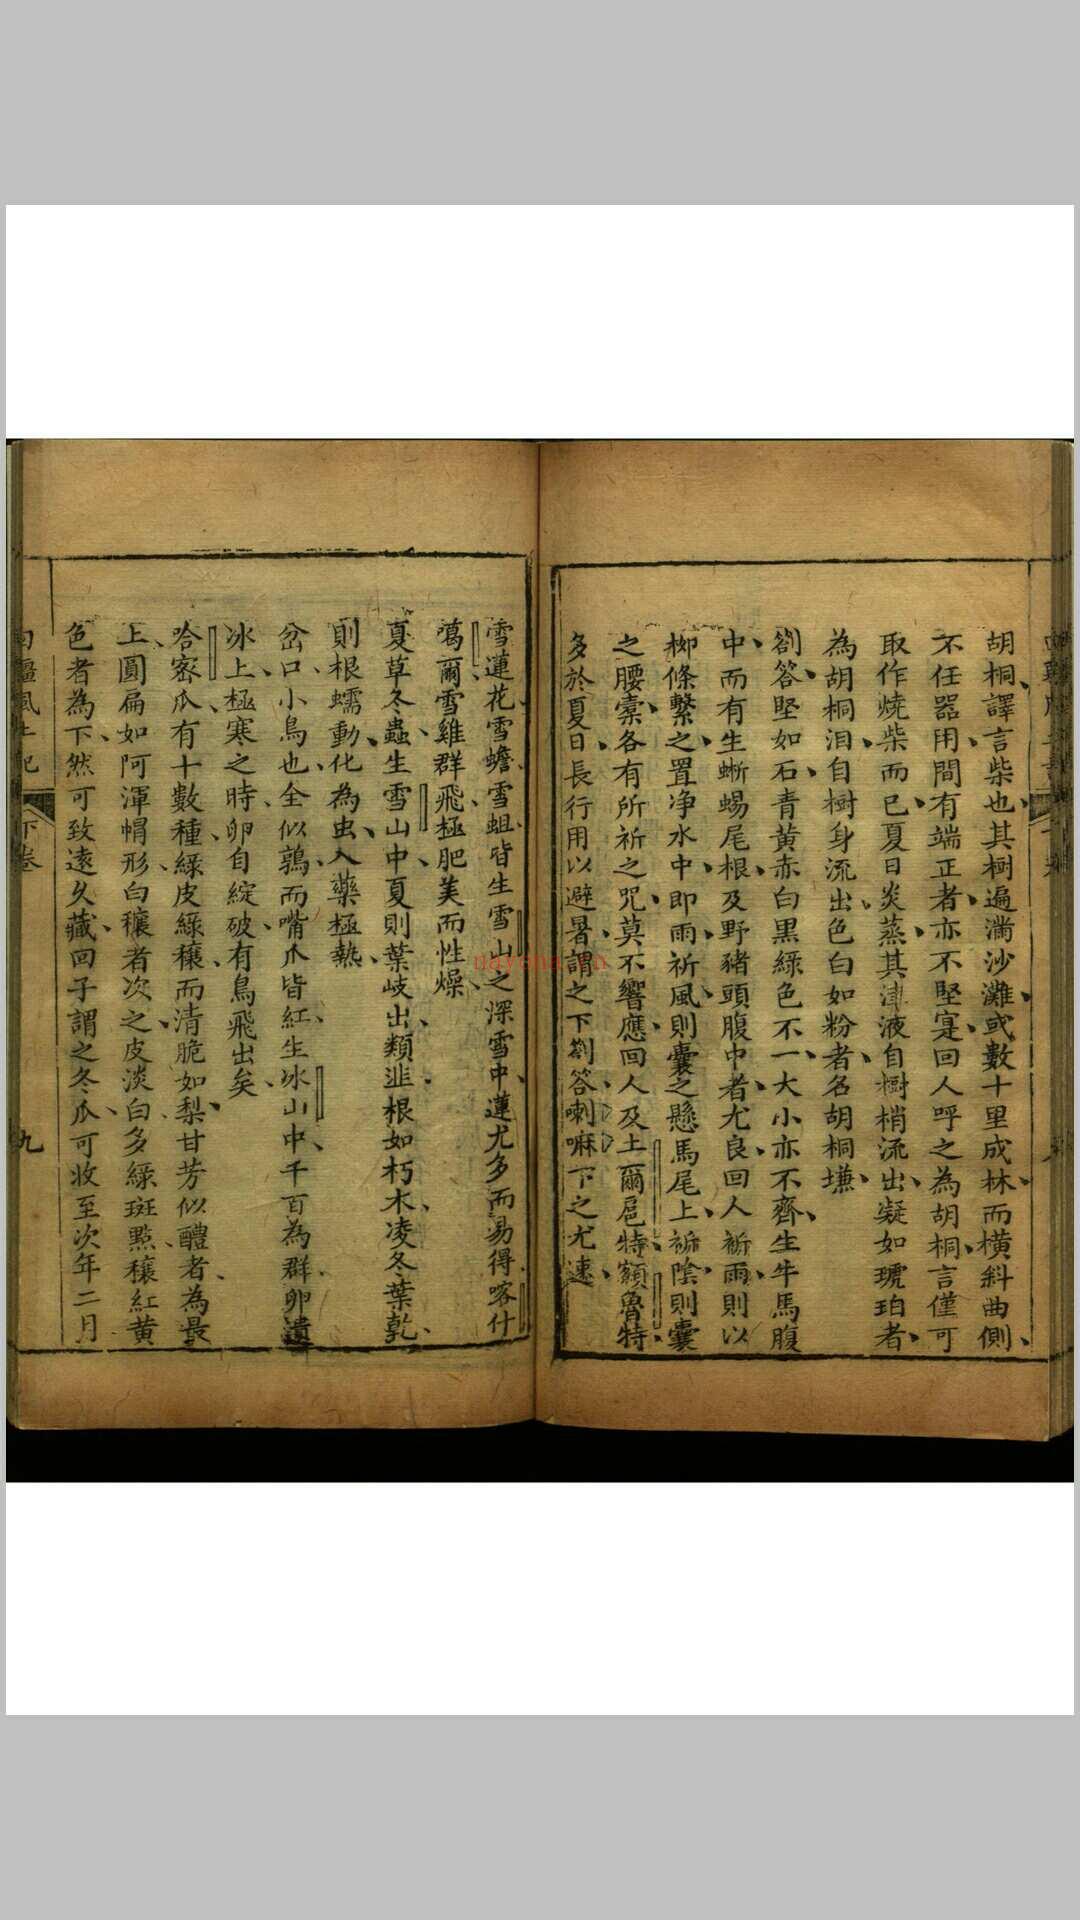 胡桐譯言柴也其樹遍滿沙灘或數十里成林而橫斜曲側
不任器用間有端正者亦不堅寔回人呼之為胡桐言僅可
取作燒柴而已夏日炎蒸其津液自樹梢流出凝如琥珀者
為胡桐淚自樹身流出色白如粉者名胡桐㙺
劄答堅如石青黃赤白黑綠色不一大小亦不齊生牛馬腹
中而有生蜥蜴尾根及野豬頭腹中者尤良回人祈雨則以
柳條繫之置净水中即雨祈風則囊之懸馬尾上祈陰則囊
之腰橐各有所祈之咒莫不響應回人及土爾扈特額魯特
多於夏日長行用以避暑謂之下劄答喇嘛下之尤速
雪蓮花雪蟾雪蛆皆生雪山之深雪中蓮尤多而易得喀什
噶爾雪雞群飛極肥美而性燥
夏草冬蟲生雪山中夏則葉歧出類韭根如朽木凌冬葉乾
則根蠕動化為虫入藥極熱
岔口小鳥也全似鶉而嘴爪皆紅生冰山中千百為群卵遺
冰上極寒之時卵自綻破有鳥飛出矣
哈密瓜有十數種綠皮綠穰而清脆如梨甘芳似醴者為最
上圓扁如阿渾帽形白穰者次之皮淡白多綠斑點穰紅黃
色者為下然可致遠久藏回子謂之冬瓜可收至次年二月
回疆風土記 下卷 九
nayona.cn